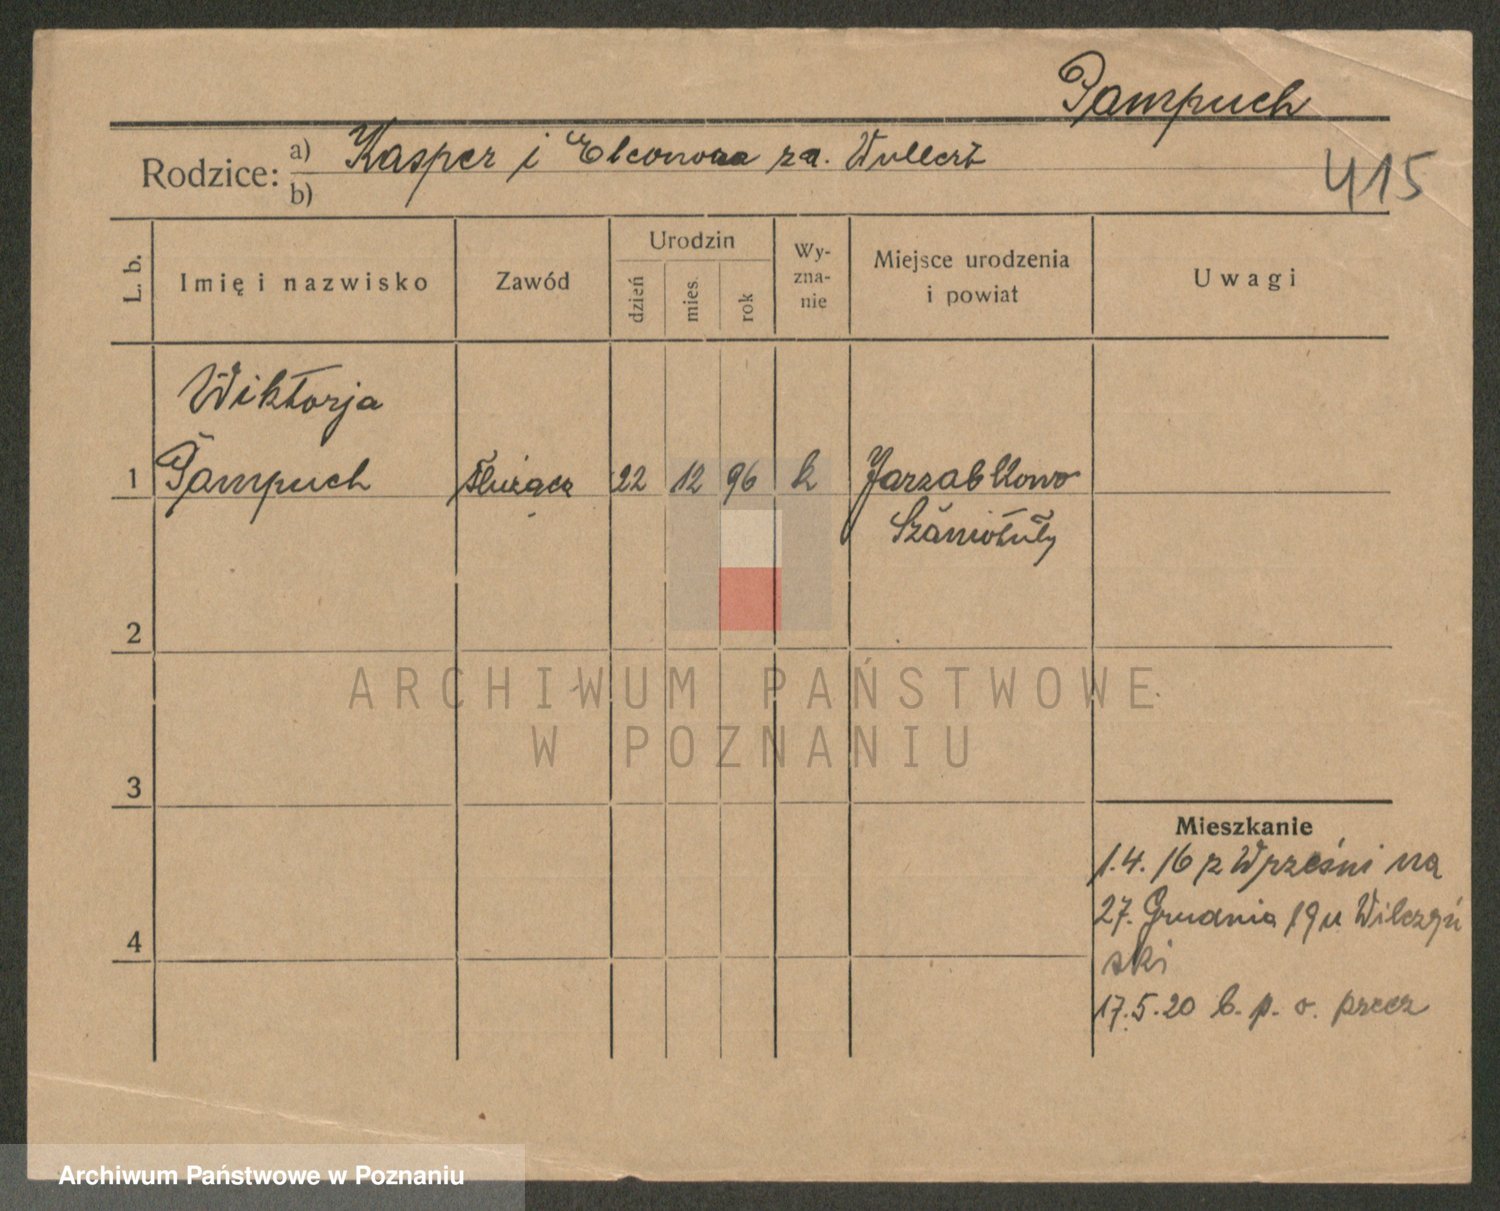 Pampuch
Rodzice: a) Kasper i Eleonora za. Wullert
b)
415
L. b.
Imię i nazwisko
Zawód
Urodzin
dzień
mies.
rok
Wy-
zna-
nie
Miejsce urodzenia
i powiat
Uwagi
Wiktorja
1 Pampuch służąca 22 12 96 k Jarząbkowo
Szamotuły
2
ARCHIWUM PAŃSTWOWE
W POZNANIU
3
Mieszkanie
1.4.16 z Wrześni na
27. Grudnia 19 u Wilczyń
4
ski
17.5.20 b. p. o. przez
Archiwum Państwowe w Poznaniu